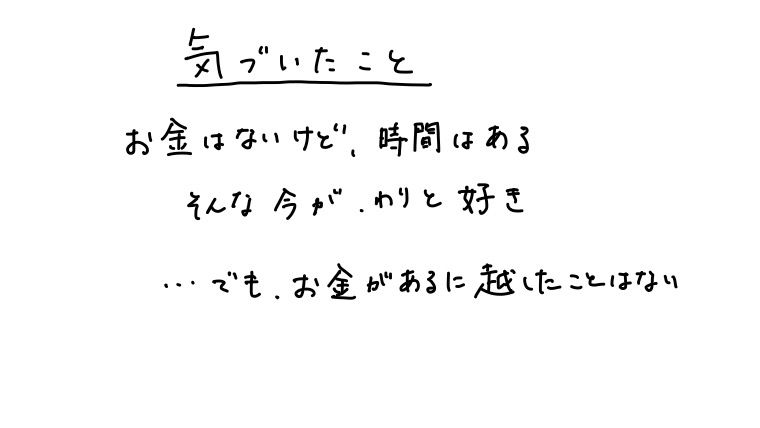 気づいたこと
お金はないけど、時間はある
そんな今が、わりと好き
…でも、お金があるに越したことはない